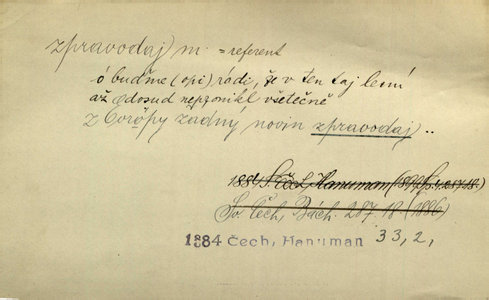 zpravodaj m. = referent
ó buďme (opi) rádi, že v ten taj lesní
až dosud nepronikl všetečně
z Evropy žádny novin zpravodaj ..
1884 Čech, Hanuman
Sv. Čech, Bách. 287 18. (1886)
1884 Čech, Hanuman 33, 2,